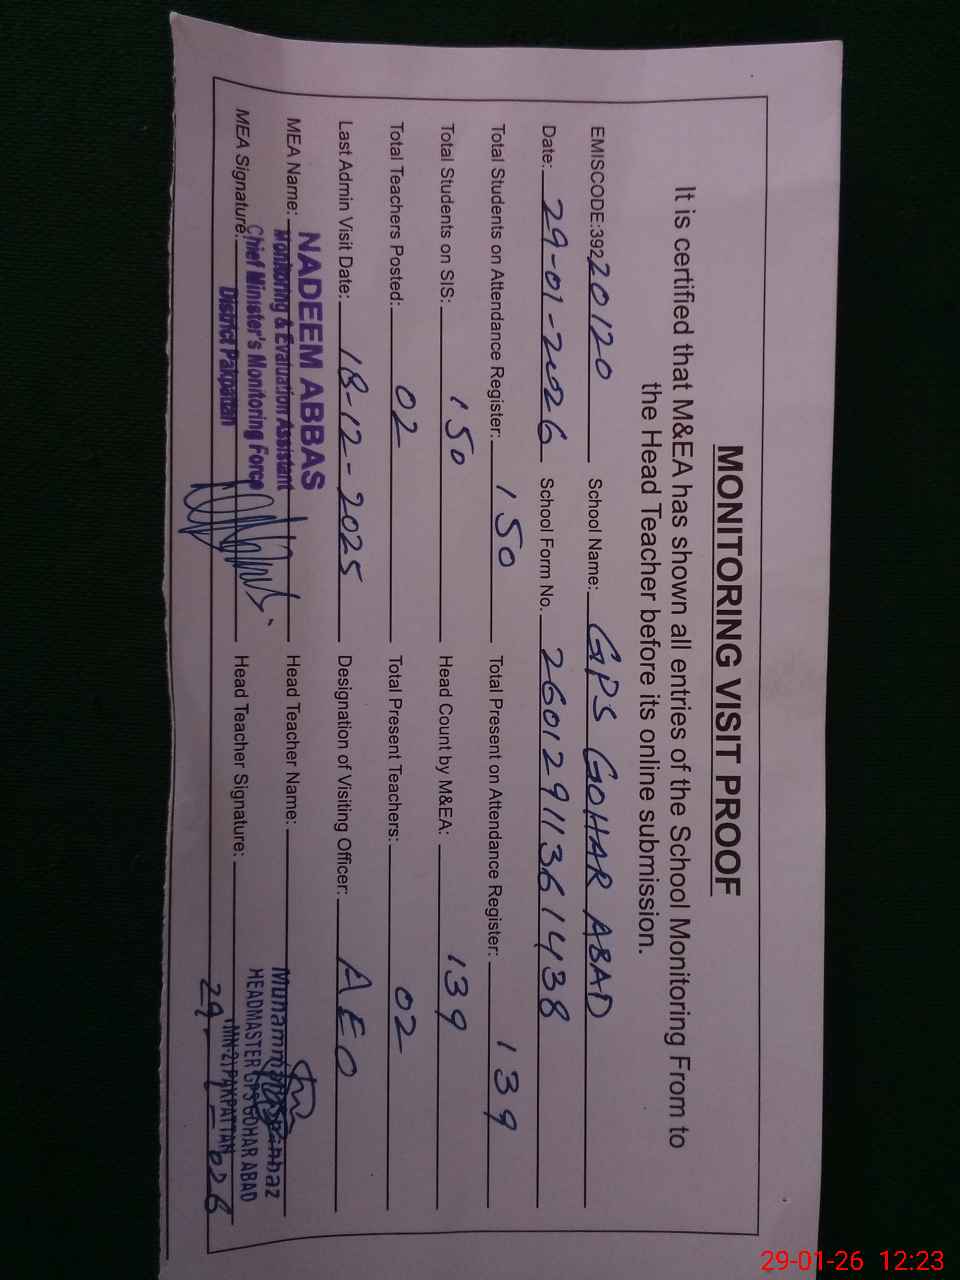 MONITORING VISIT PROOF
It is certified that M&EA has shown all entries of the School Monitoring From to
the Head Teacher before its online submission.
EMISCODE:39220120 School Name: GPS GOHAR ABAD
Date: 29-01-2026 School Form No. 26012911361438
Total Students on Attendance Register: 150 Total Present on Attendance Register: 139
Total Students on SIS: 150 Head Count by M&EA: 139
Total Teachers Posted: 02 Total Present Teachers: 02
Last Admin Visit Date: 18-12-2025 Designation of Visiting Officer: AEO
NADEEM ABBAS
MEA Name: Monitoring & Evaluation Assistant Head Teacher Name: Muhammad
MEA Signature: Chief Minister's Monitoring Force Head Teacher Signature: HEADMASTER GPS GOHAR ABAD
District Pakpattan PAKPATTAN
29-01-26 12:23